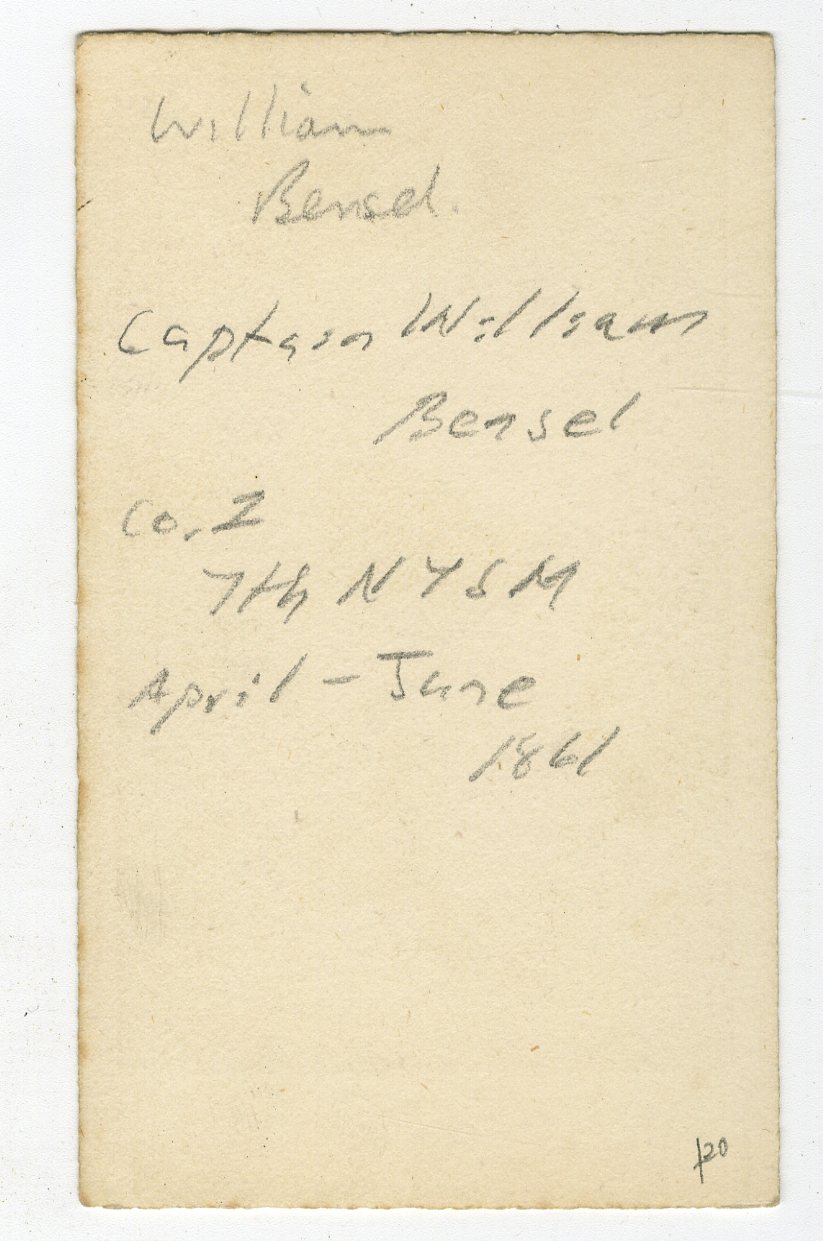 William
Bensel.
Captain William
Bensel
Co. I
7th NYSM
April - June
1861
120